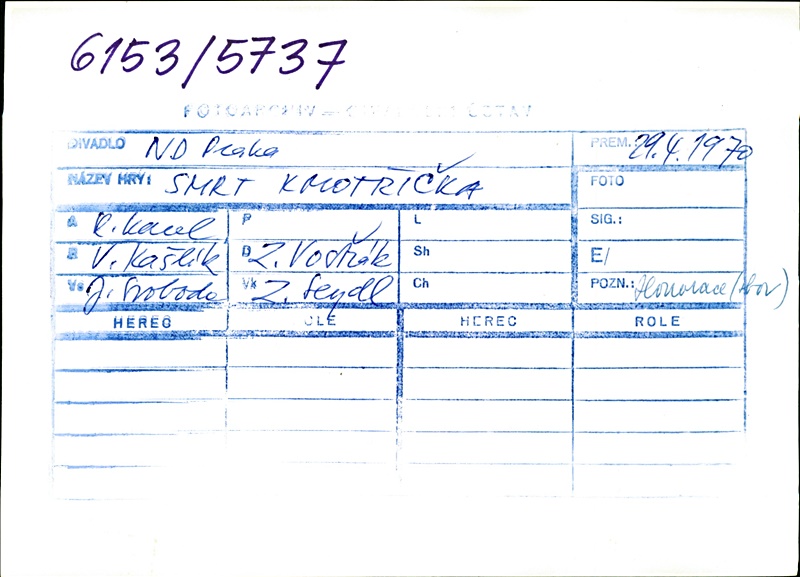 6153/5737
FOTOARCHIV — ÚSTAV
DIVADLO ND Praha PREM. 29.4.1970
NÁZEV HRY: SMRT KMOTŘIČKA FOTO
A R. Karel P L SIG.:
R V. Kašlík D Z. Vostřák Sh E/
Vs J. Svoboda Vk Z. Seydl Ch POZN.: (sbor)
HEREC OLE HEREC ROLE